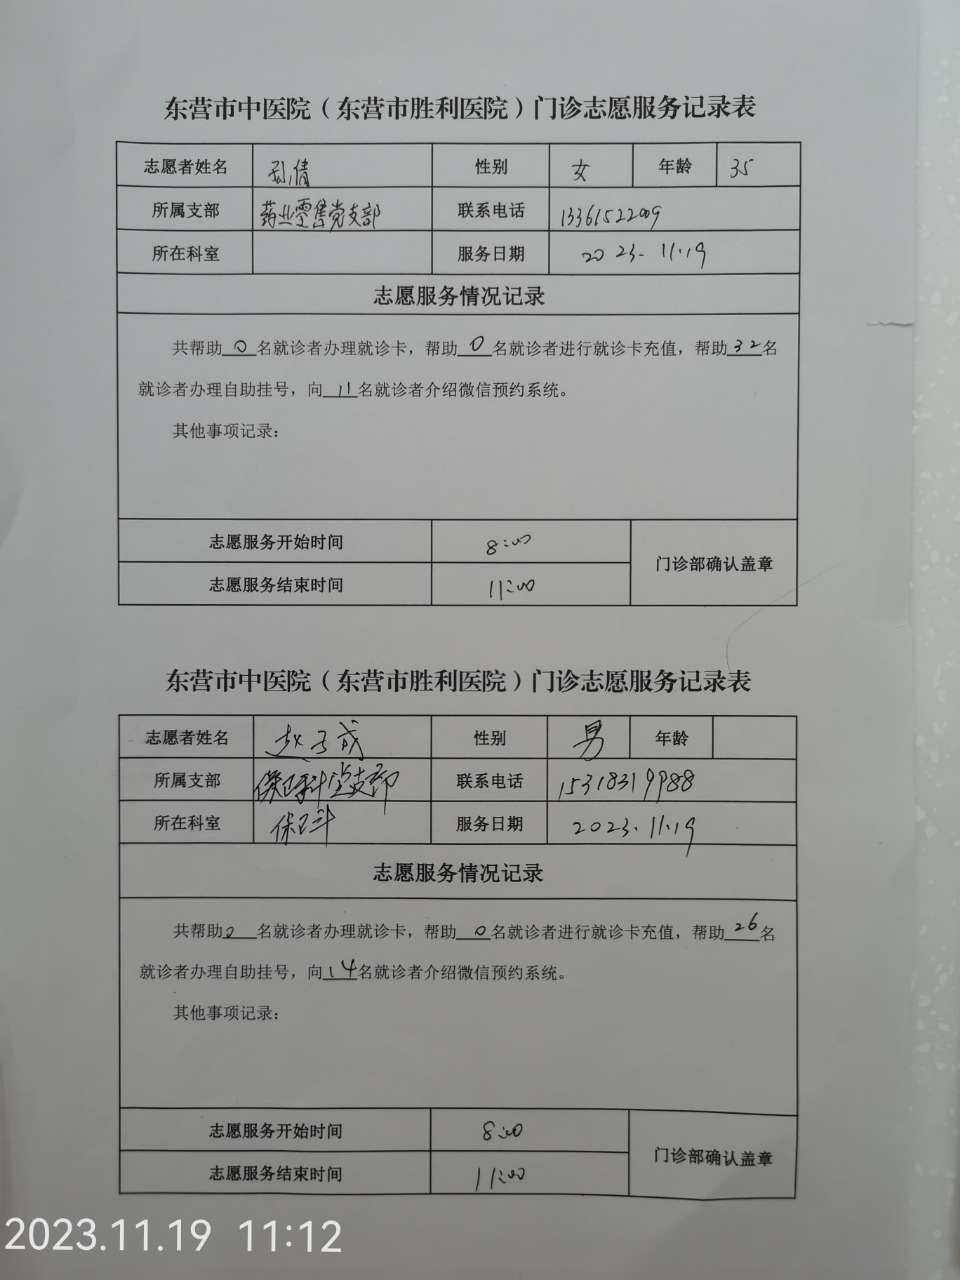 东营市中医院（东营市胜利医院）门诊志愿服务记录表
志愿者姓名 孙倩 性别 女 年龄 35
所属支部 药业零售党支部 联系电话 13361522009
所在科室 服务日期 2023.11.19
志愿服务情况记录
共帮助0名就诊者办理就诊卡，帮助0名就诊者进行就诊卡充值，帮助32名
就诊者办理自助挂号，向11名就诊者介绍微信预约系统。
其他事项记录：
志愿服务开始时间 8:00
门诊部确认盖章
志愿服务结束时间 11:00
东营市中医院（东营市胜利医院）门诊志愿服务记录表
志愿者姓名 赵子成 性别 男 年龄
所属支部 保卫科党支部 联系电话 15318319988
所在科室 保卫科 服务日期 2023.11.19
志愿服务情况记录
共帮助0名就诊者办理就诊卡，帮助0名就诊者进行就诊卡充值，帮助26名
就诊者办理自助挂号，向14名就诊者介绍微信预约系统。
其他事项记录：
志愿服务开始时间 8:00
门诊部确认盖章
志愿服务结束时间 11:00
2023.11.19 11:12